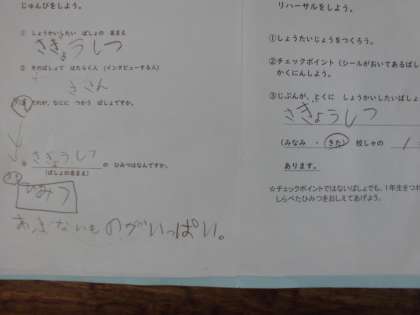 じゅんびをしよう。
① しょうかいしたい ばしょの なまえ
さぎょうしつ
② そのばしょで はたらく人 (インタビューする人)
さん
だれが、なにに つかう ばしょですか。
さぎょうしつ の ひみつはなんですか。
(ばしょの名まえ)
ひみつ
あぶないものがいっぱい。
リハーサルをしよう。
①しょうたいじょうをつくろう。
②チェックポイント (シールがおいてあるばし
かくにんしよう。
③じぶんが、とくに しょうかいしたいばしょ
さぎょうしつ
(みなみ ・ きた) 校しゃの 1
あります。
☆チェックポイントではないばしょでも、1年生をつれ
しらべたひみつをおしえてあげよう。